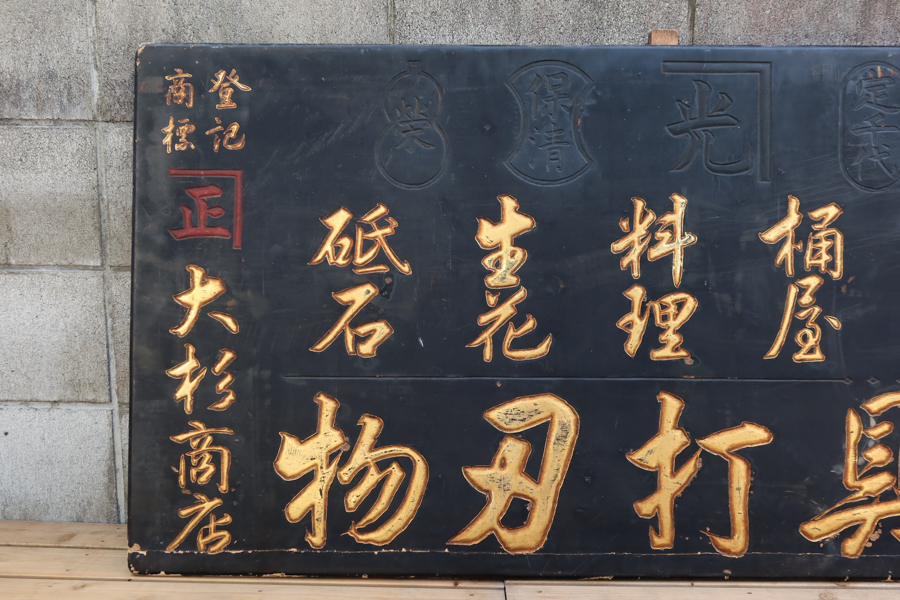 光
保清
栄
桶屋
料理
生花
砥石
具打刃物
登記
商標
正
大杉商店